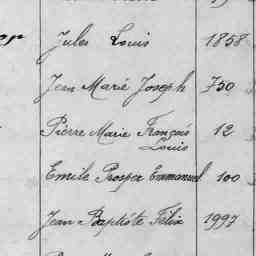 Jules Louis 1858
Jean Marie Joseph 750
Pierre Marie François 12
Louis
Emile Prosper Emmanuel 100
Jean Baptiste Félix 1997